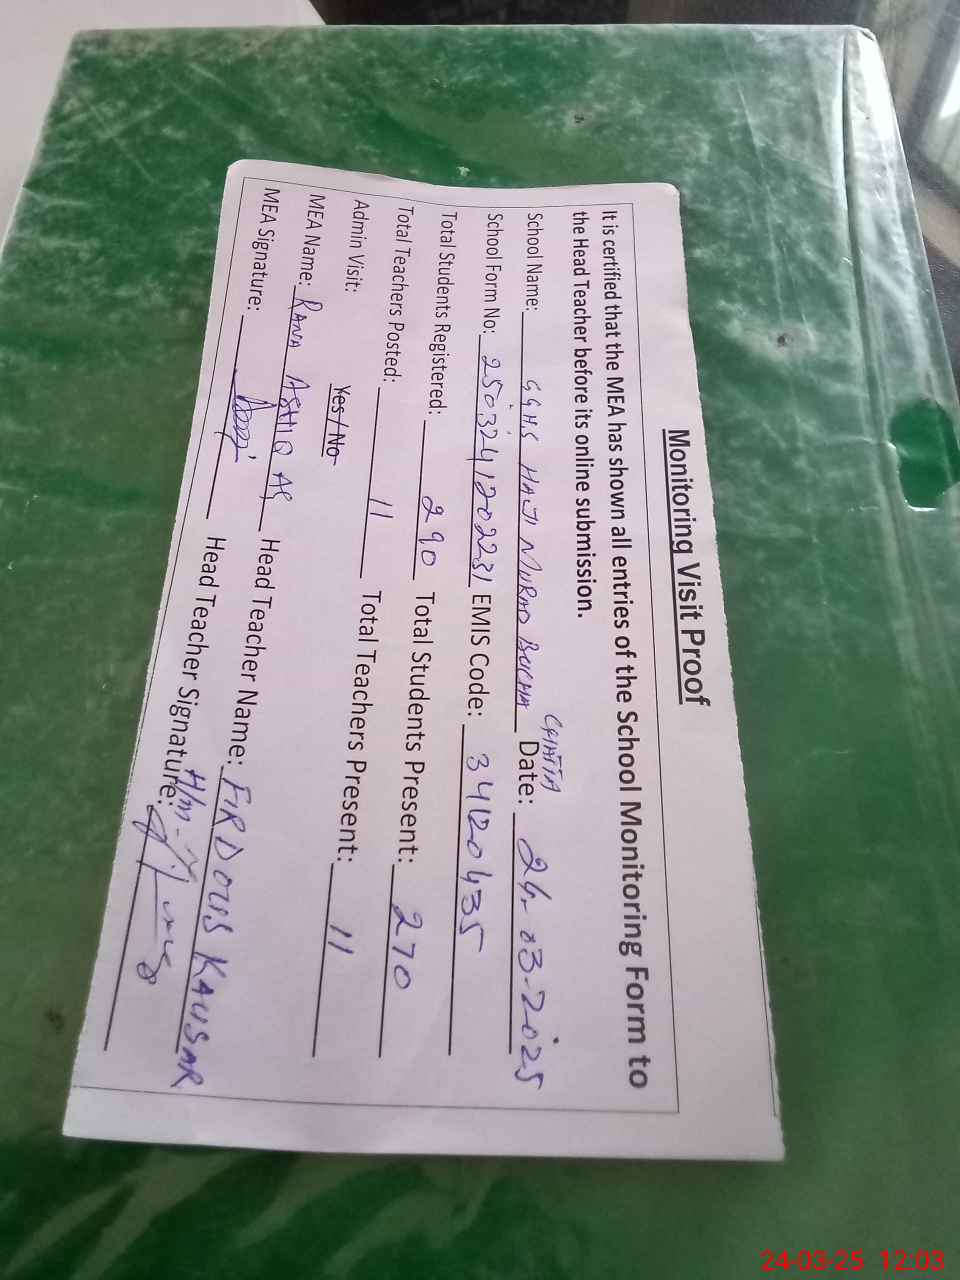 Monitoring Visit Proof
It is certified that the MEA has shown all entries of the School Monitoring Form to
the Head Teacher before its online submission.
School Name: GGHS HAJI MURAD BUCHA CHATTA Date: 24-03-2025
School Form No: 2503241202231 EMIS Code: 34120435
Total Students Registered: 290 Total Students Present: 270
Total Teachers Posted: 11 Total Teachers Present: 11
Admin Visit: Yes / No
MEA Name: RANA ASHIQ Head Teacher Name: FIRDOUS KAUSAR
MEA Signature: Head Teacher Signature: H/m
24-03-25 12:03